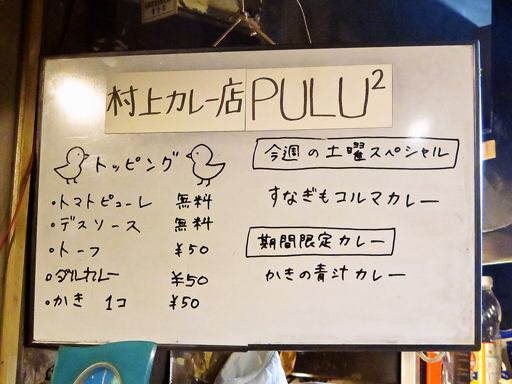 村上カレー店 PULU²
トッピング
・トマトピューレ 無料
・デスソース 無料
・トーフ ¥50
・ダルカレー ¥50
・かき 1コ ¥50
今週の土曜スペシャル
すなぎもコルマカレー
期間限定カレー
かきの青汁カレー